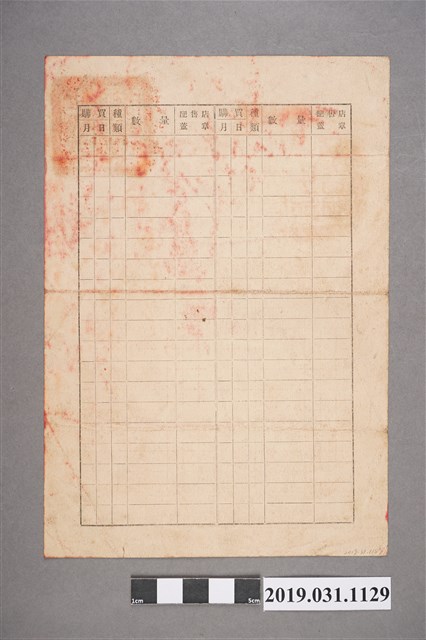 購買 種 數量 經售店 購買 種 數量 經售店
月日 類 蓋章 月日 類 蓋章
1cm 5cm
2019.031.1129